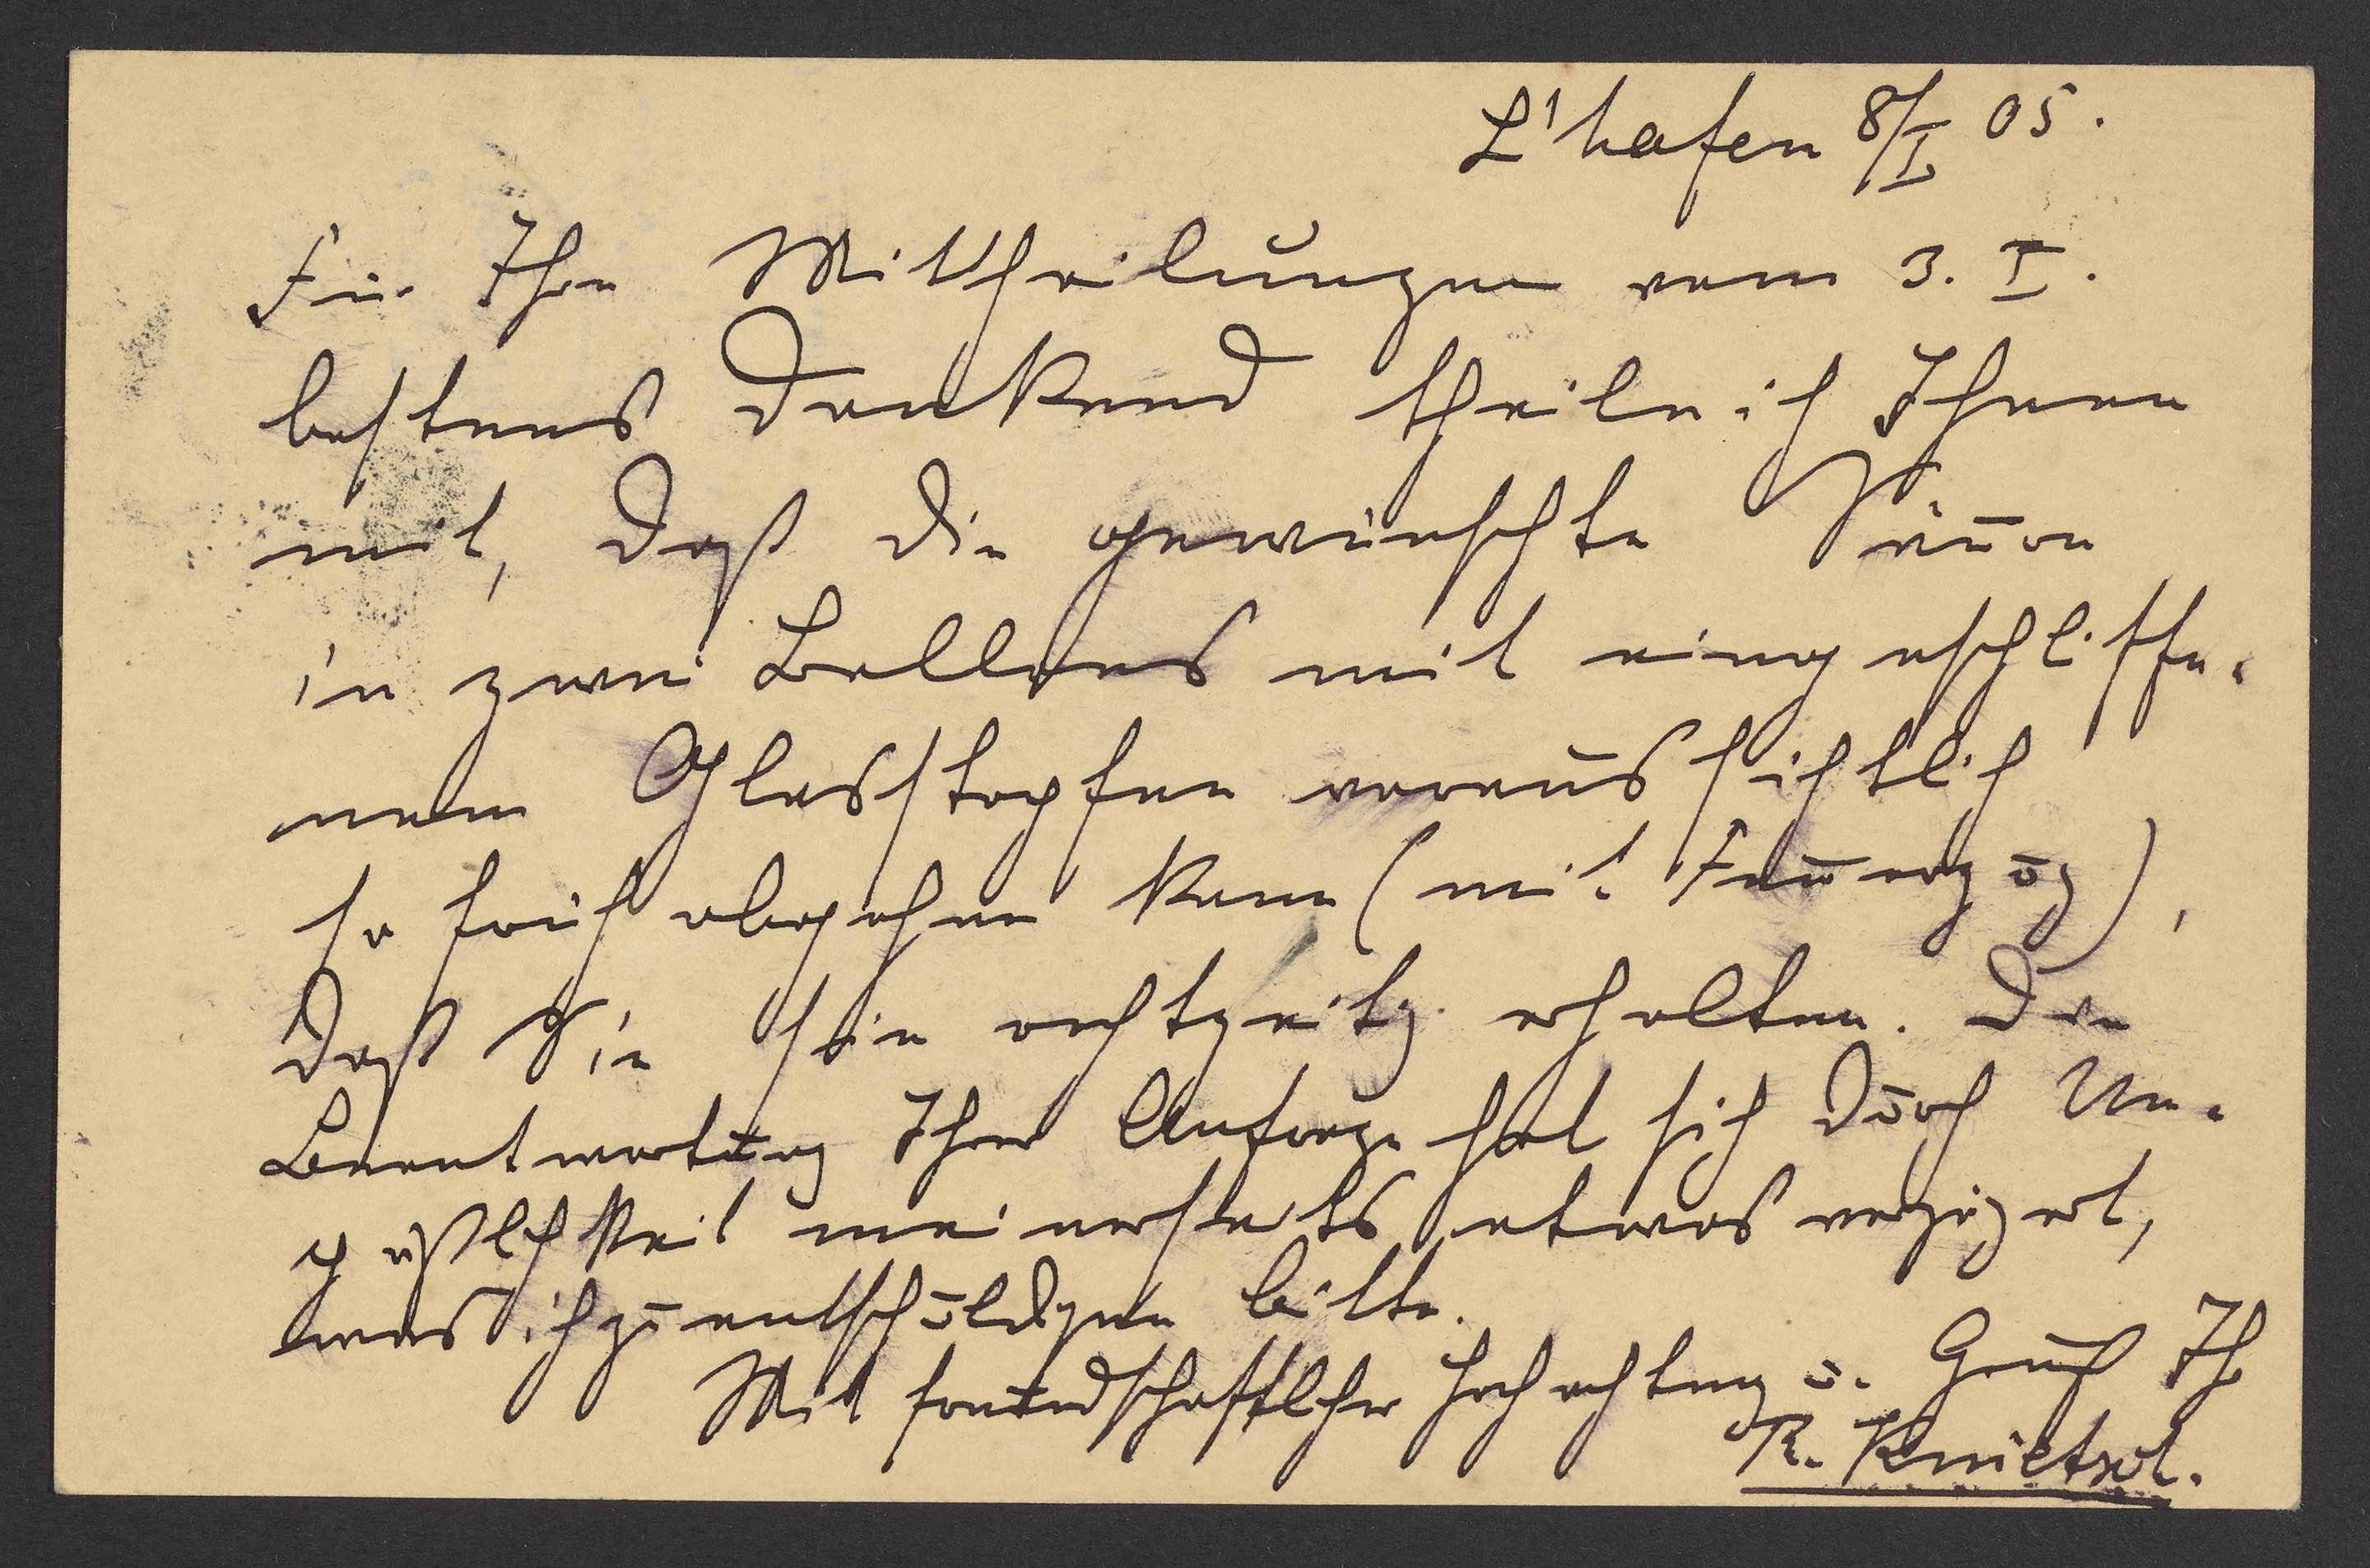 L'hafen 8/I 05.
Für Ihre Mittheilungen vom 3. I.
bestens dankend theile ich Ihnen
mit, daß die gewünschte Säure
in zwei Ballons mit eingeschliffe-
nem Glasstopfen voraussichtlich
so früh abgehen kann (mit Feuerzug),
daß Sie sie rechtzeitg erhalten. Die
Beantwortung Ihrer Anfrage hat sich durch Un-
päßlichkeit meinerseits etwas verzögert,
was ich zu entschuldigen bitte.
Mit freundschaftlicher Hochachtung u. Gruß Ihr
R. Knietsch.